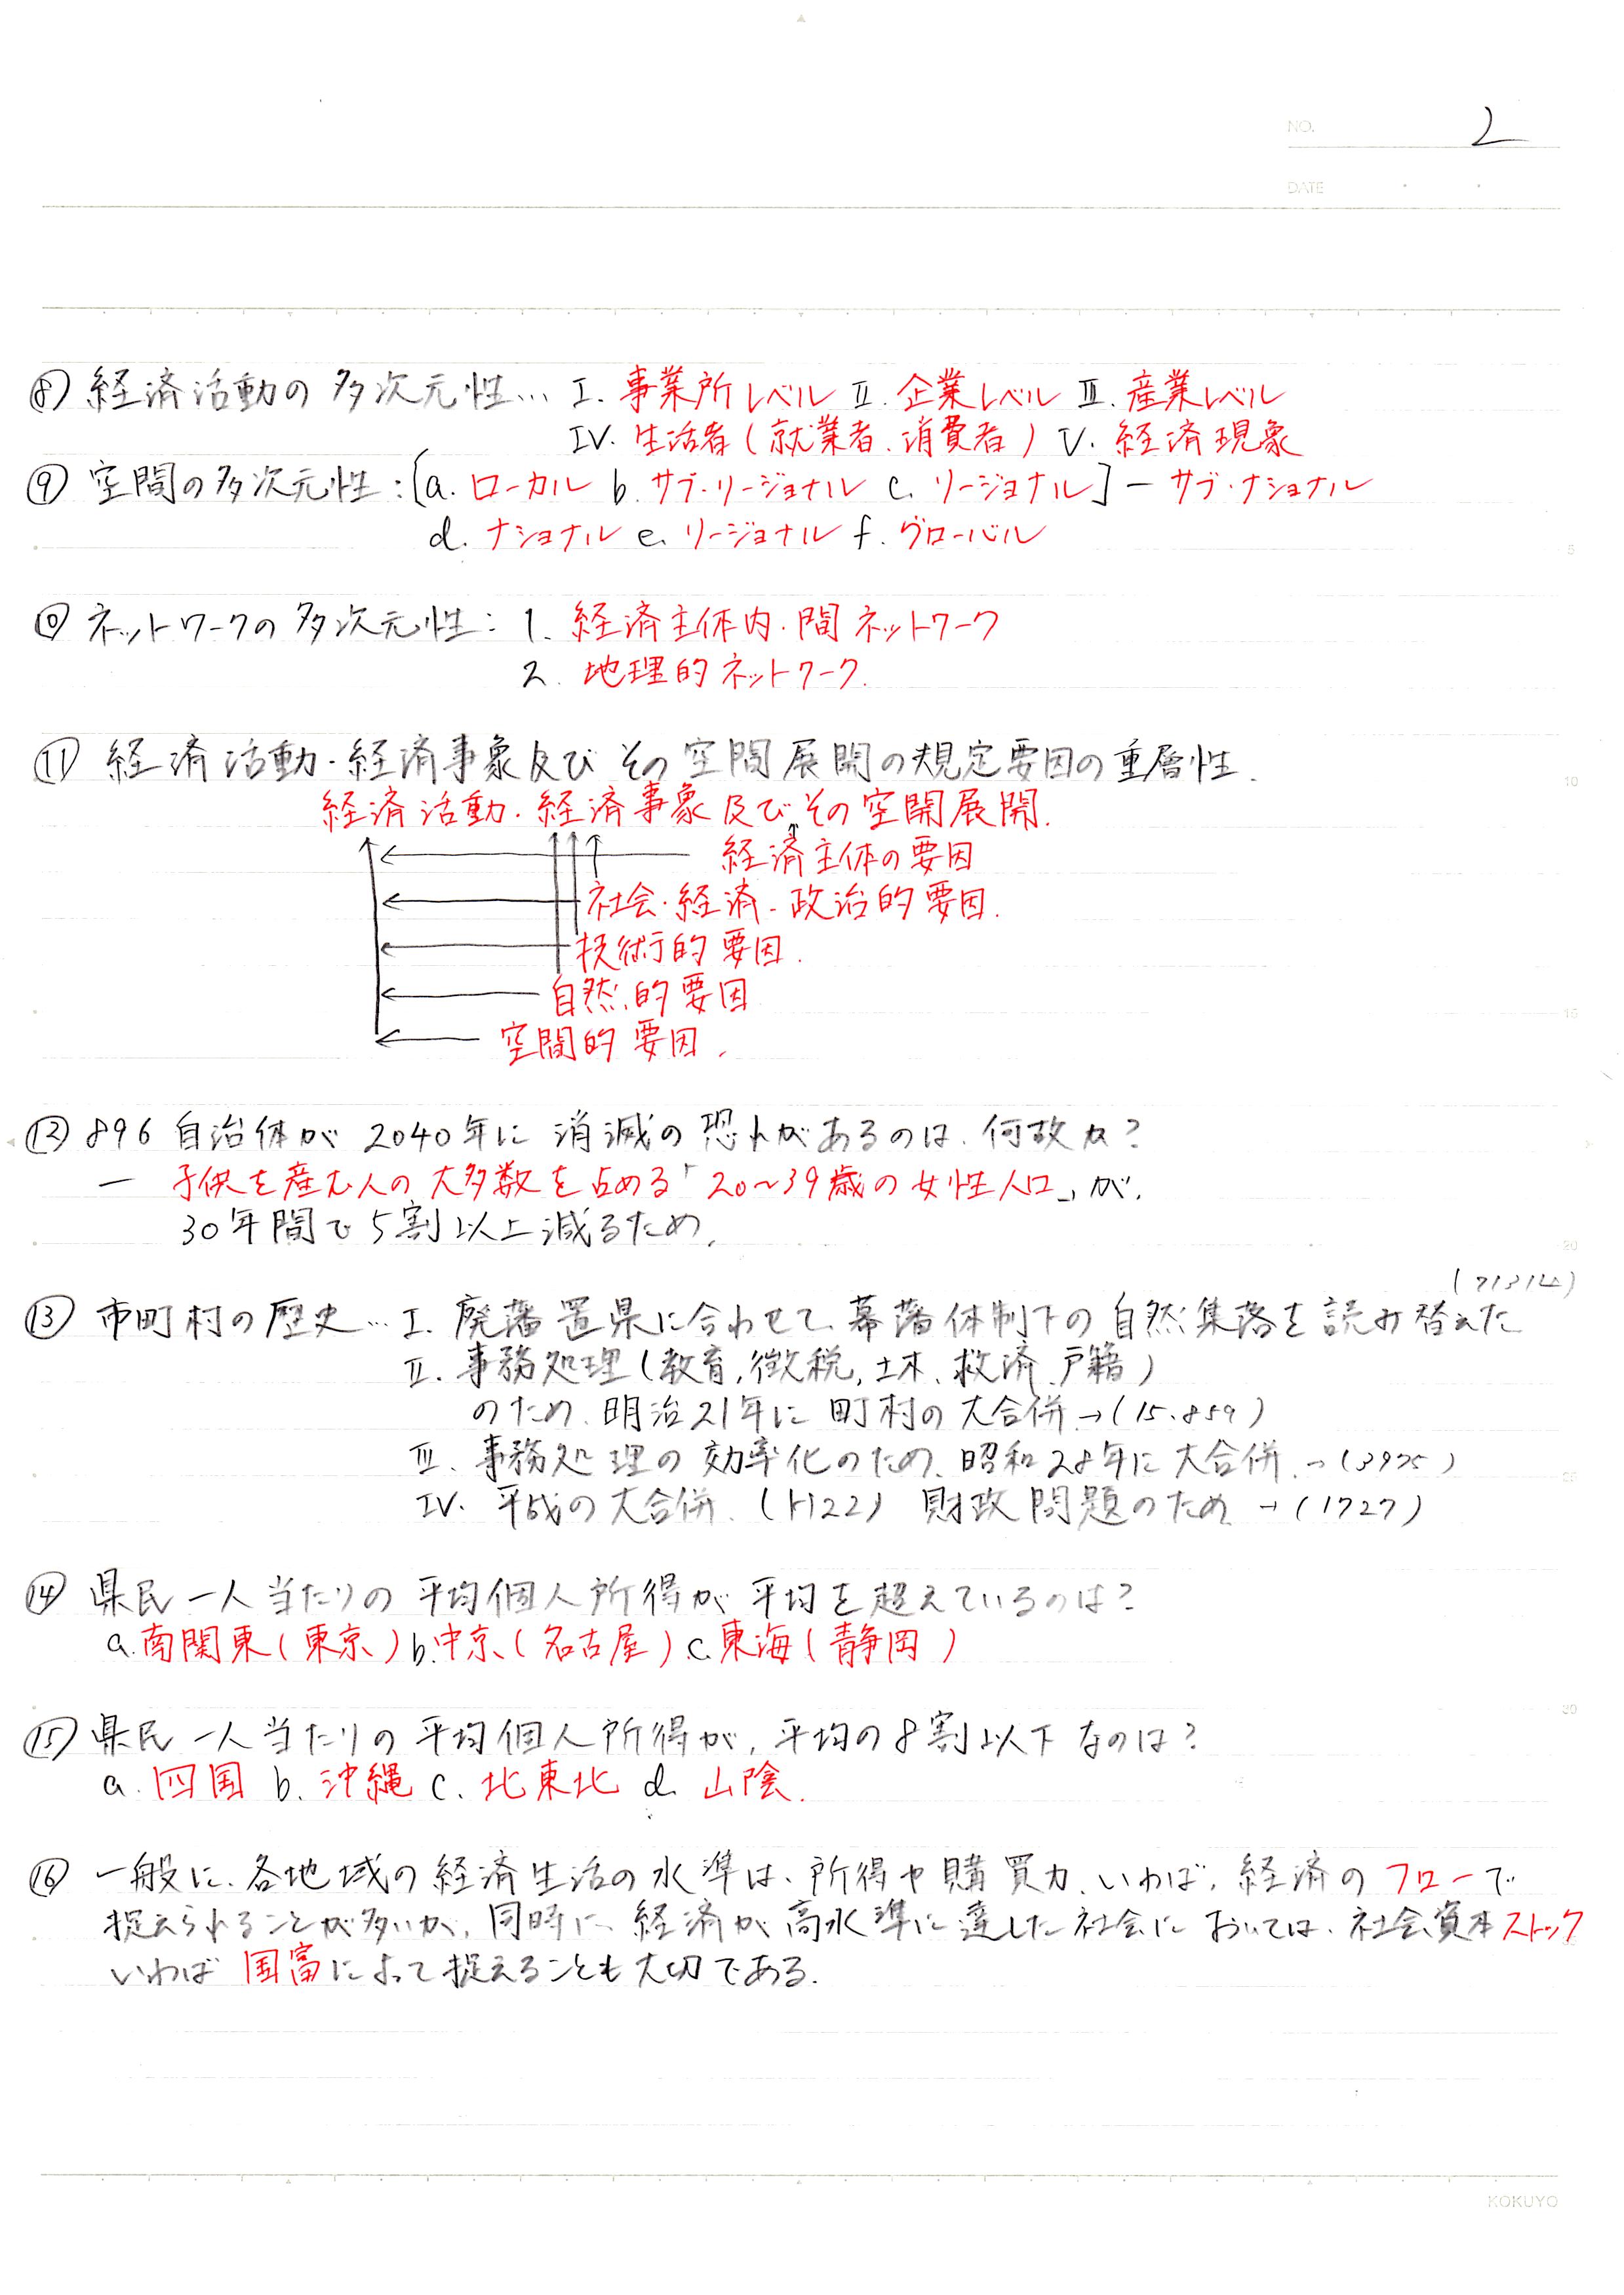 NO. 2
DATE
⑧ 経済活動の多次元性… Ⅰ. 事業所レベル Ⅱ. 企業レベル Ⅲ. 産業レベル
Ⅳ. 生活者(就業者、消費者) Ⅴ. 経済現象
⑨ 空間の多次元性:[a. ローカル b. サブ・リージョナル c. リージョナル]ー サブ・ナショナル
d. ナショナル e. リージョナル f. グローバル
5
⑩ ネットワークの多次元性: 1. 経済主体内・間ネットワーク
2. 地理的ネットワーク.
⑪ 経済活動・経済事象及びその空間展開の規定要因の重層性.
10
経済活動・経済事象及びその空間展開.
経済主体の要因
社会・経済・政治的要因.
技術的要因.
自然的要因
15
空間的要因.
⑫ 896自治体が2040年に消滅の恐れがあるのは、何故か?
ー 子供を産む人の大多数を占める「20〜39歳の女性人口」が、
30年間で5割以上減るため.
20
(71314)
⑬ 市町村の歴史… Ⅰ. 廃藩置県に合わせて、幕藩体制下の自然集落を読み替えた
Ⅱ. 事務処理(教育,徴税,土木、救済、戸籍)
のため、明治21年に町村の大合併→(15.859)
Ⅲ. 事務処理の効率化のため、昭和28年に大合併.→(3975)
25
Ⅳ. 平成の大合併.(H22) 財政問題のため→(1727)
⑭ 県民一人当たりの平均個人所得が平均を超えているのは?
a.南関東(東京) b.中京(名古屋) c.東海(静岡)
30
⑮ 県民一人当たりの平均個人所得が,平均の8割以下なのは?
a. 四国 b. 沖縄 c. 北東北 d. 山陰.
⑯ 一般に、各地域の経済生活の水準は、所得や購買力、いわば,経済のフローで
捉えられることが多いが,同時に、経済が高水準に達した社会においては、社会資本ストック
いわば国富によって捉えることも大切である.
KOKUYO